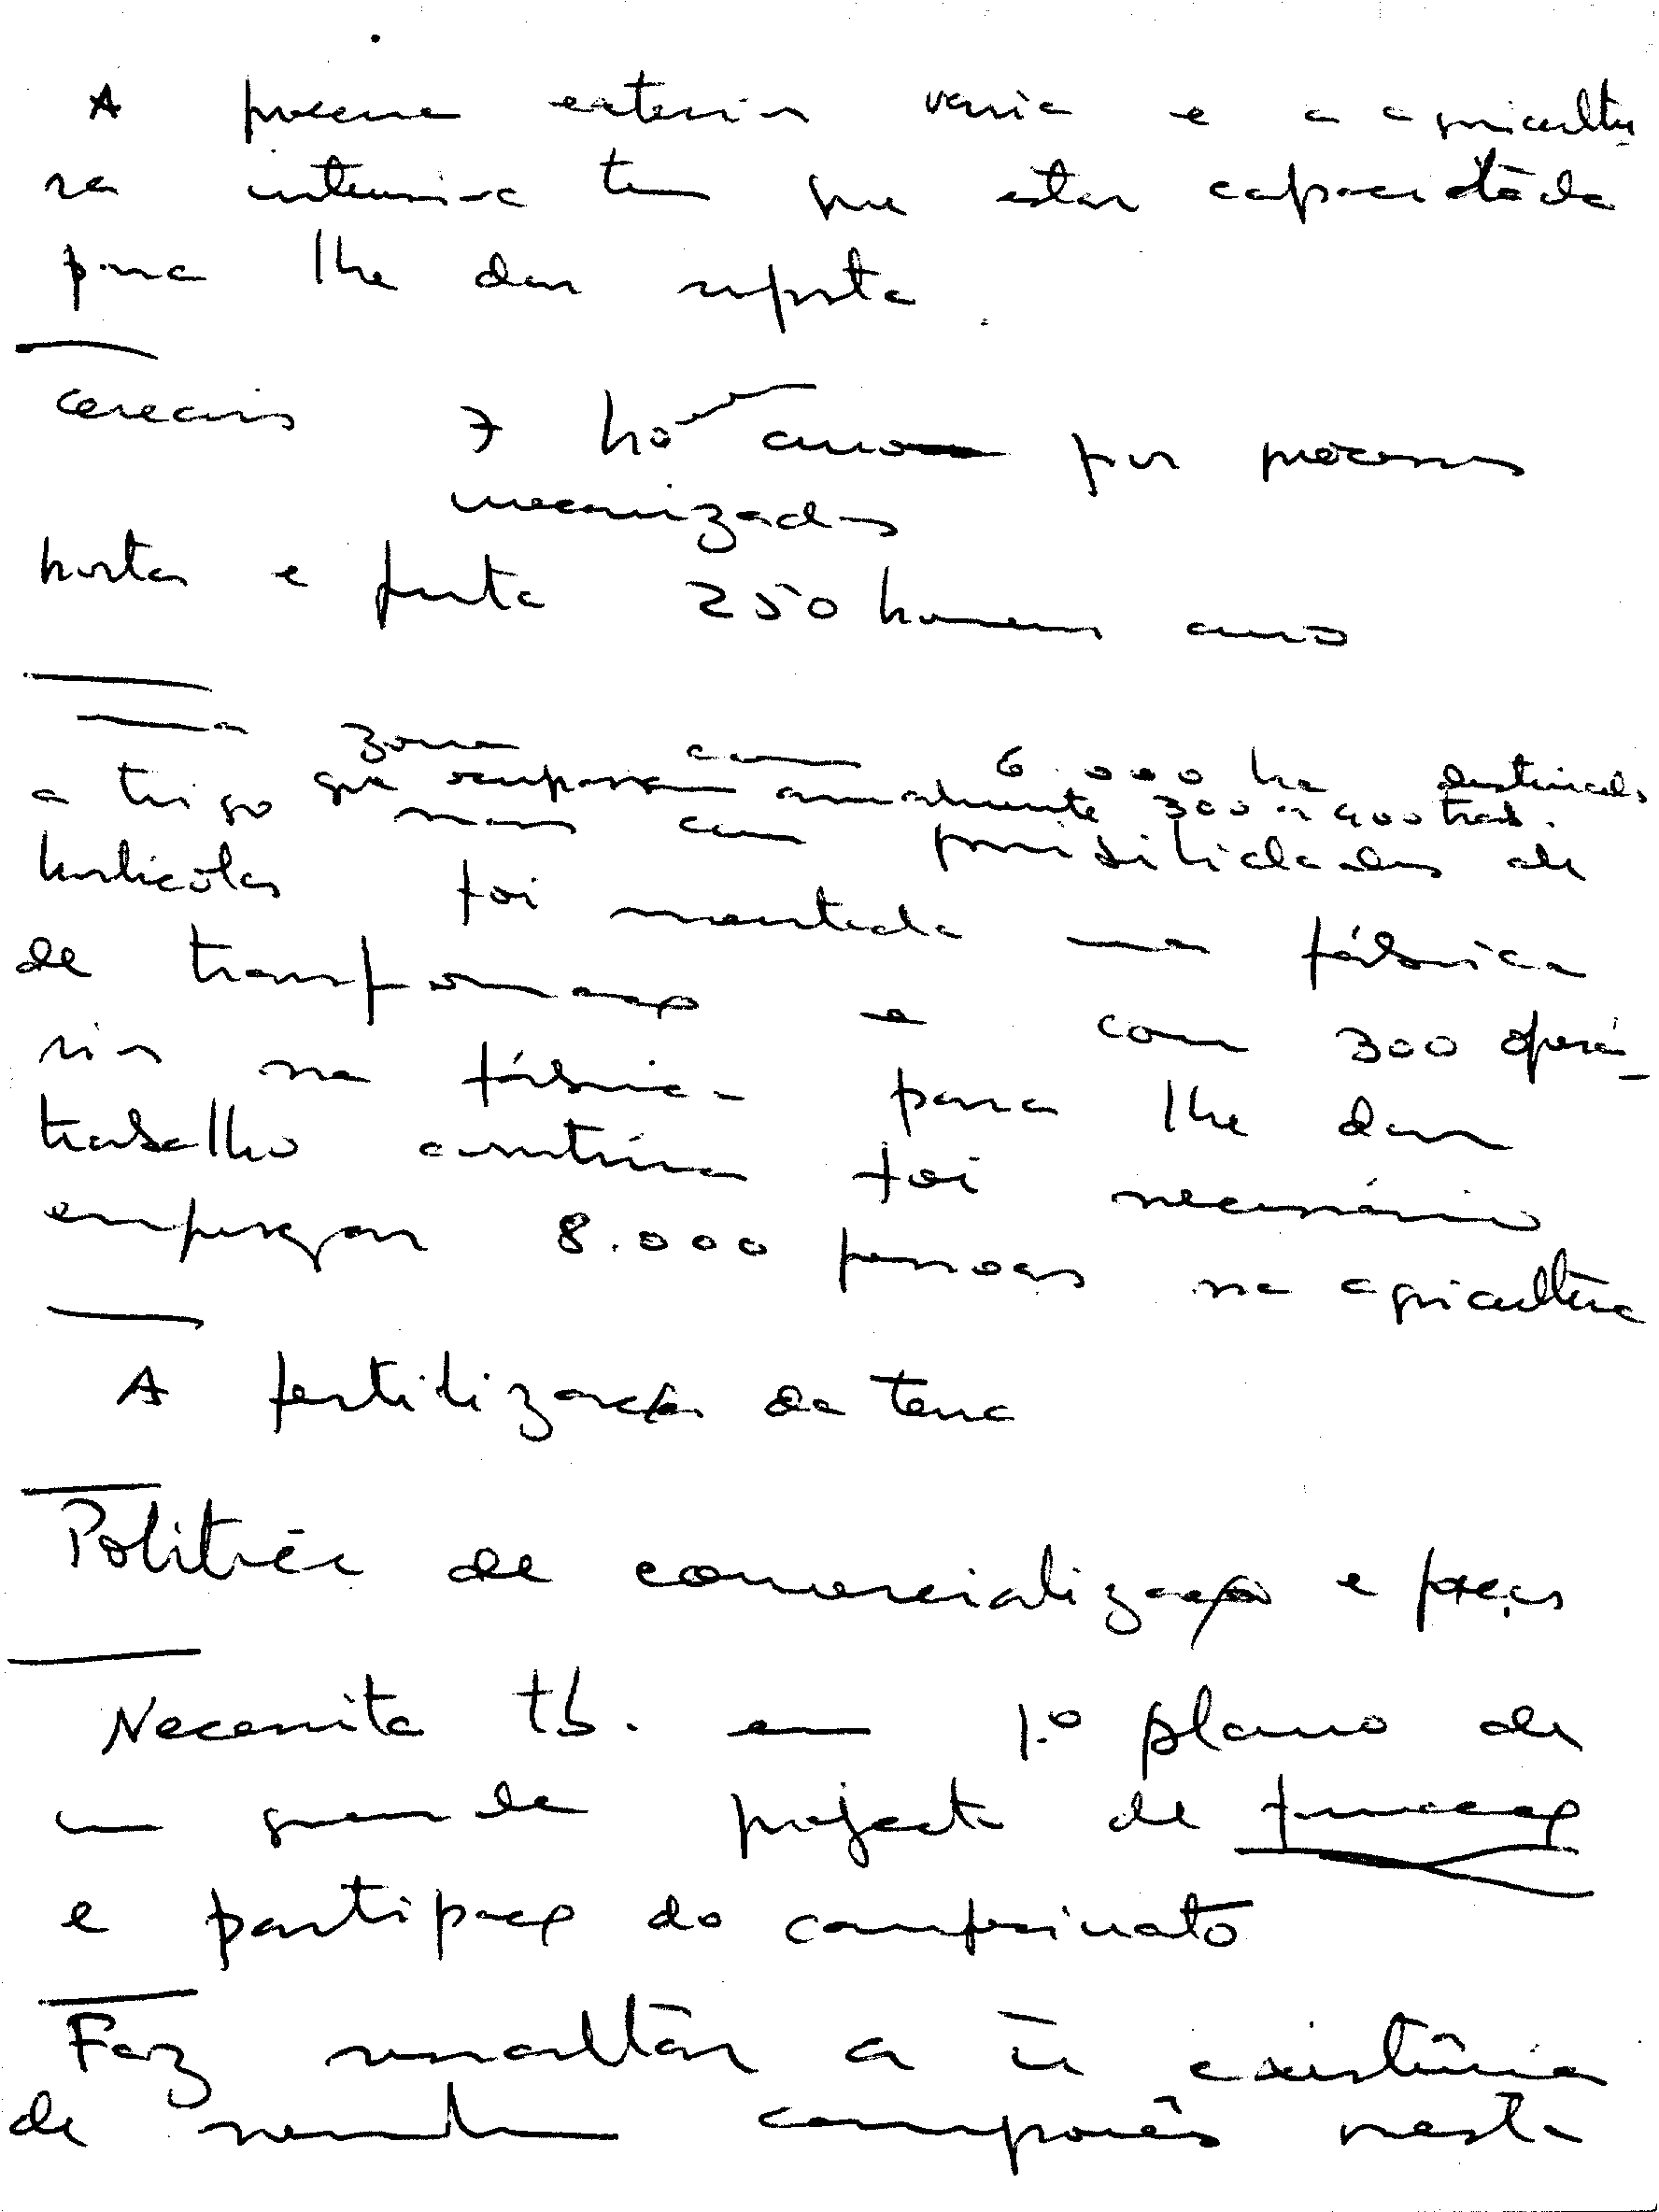 A procura exterior varia e a agricultu
ra intensiva tem que estar capacitada
para lhe dar resposta
cereais 7 ho ano por processos
mecanizados
hortas e fruta 250 homens ano
numa zona com 6.000 ha destinados
a trigo que ocupavam anualmente 300 a 400 trab.
mas com possibilidades de
hortícolas foi montada uma fábrica
de transformação e com 300 operá-
rios na fábrica para lhe dar
trabalho contínuo foi necessário
empregar 8.000 pessoas na agricultura
A fertilização da terra
Política de comercialização e preços
Necessita tb. em 1.º plano de
um grande projecto de formação
e partipação do campesinato
Faz ressaltar a ñ existência
de nenhum camponês nesta